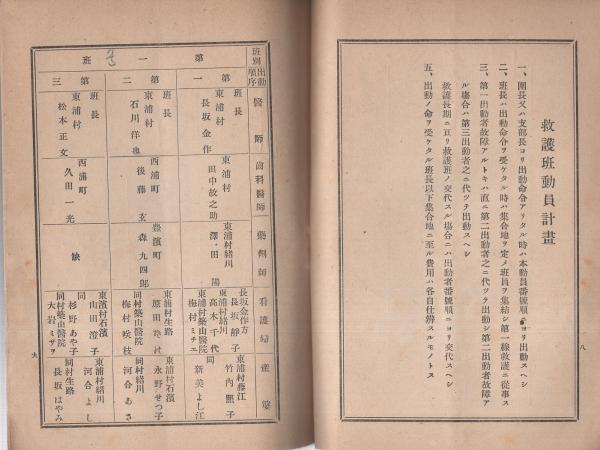 救護班動員計畫
一、團長又ハ支部長ヨリ出動命令アリタル時ハ本動員番號順ニヨリ出動スヘシ
二、班長ハ出動命令ヲ受ケタル時ハ集合地ヲ定メ班員ヲ集結シ第一線救護ニ從事ス
三、第一出動者故障アルトキハ直ニ第二出動者之ニ代ツテ出動シ第二出動者故障ア
ル場合ハ第三出動者之ニ代ツテ出動スヘシ
救護長期ニ亙リ救護班ノ交代スル場合ニハ出動者番號順ニヨリ交代スヘシ
五、出動ノ命ヲ受ケタル班長以下集合地ニ至ル費用ハ各自仕辨スルモノトス
八
班別
出動順序
醫師
齒科醫師
藥劑師
看護婦
產婆
第一班
第一
班長
東浦村
長坂金作
東浦村
田中故之助
東浦村緒川
澤田陽
長坂金作方
長坂靜子
東浦村緒川
高木千代
東浦村築山醫院
梅村ミチエ
東浦村藤江
竹内熈子
同
新美よし江
第二
班長
東浦村
石川洋也
西浦町
後藤玄
豊濱町
森九四郎
東浦村生路
原田
同村築山醫院
梅村咲枝
東浦村石濱
永野せつ子
同村緒川
河合あさ
第三
班長
東浦村
松本正文
西浦町
久田一光
缺
東濱村石濱
山田澄子
同
杉野あや子
同村築山醫院
大岩ミサヲ
東浦村緒川
河合よし
同村生路
長坂はやみ
九